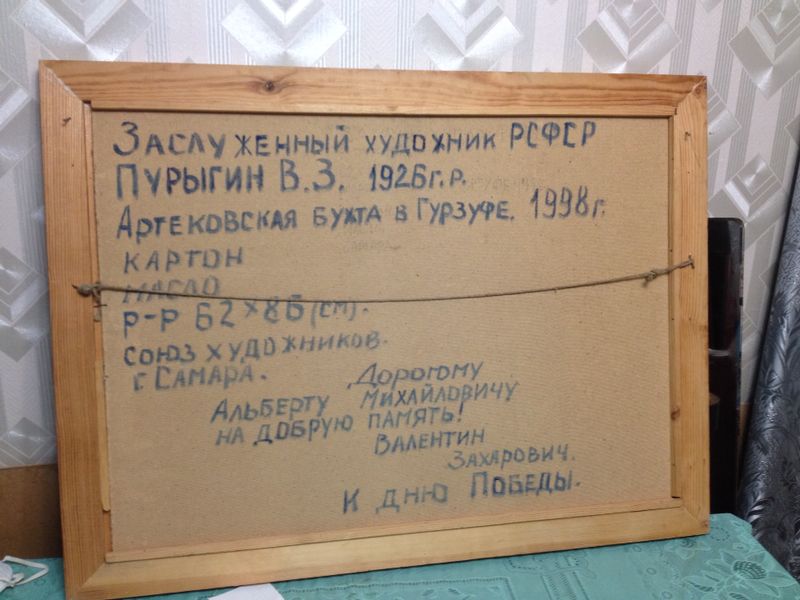 Заслуженный художник РСФСР
Пурыгин В.З. 1926г.р.
Артековская бухта в Гурзуфе. 1998г.
картон
масло
р-р 62х86 (см).
союз художников.
г. Самара.
Дорогому
Альберту Михайловичу
на добрую память!
Валентин
Захарович.
К дню Победы.